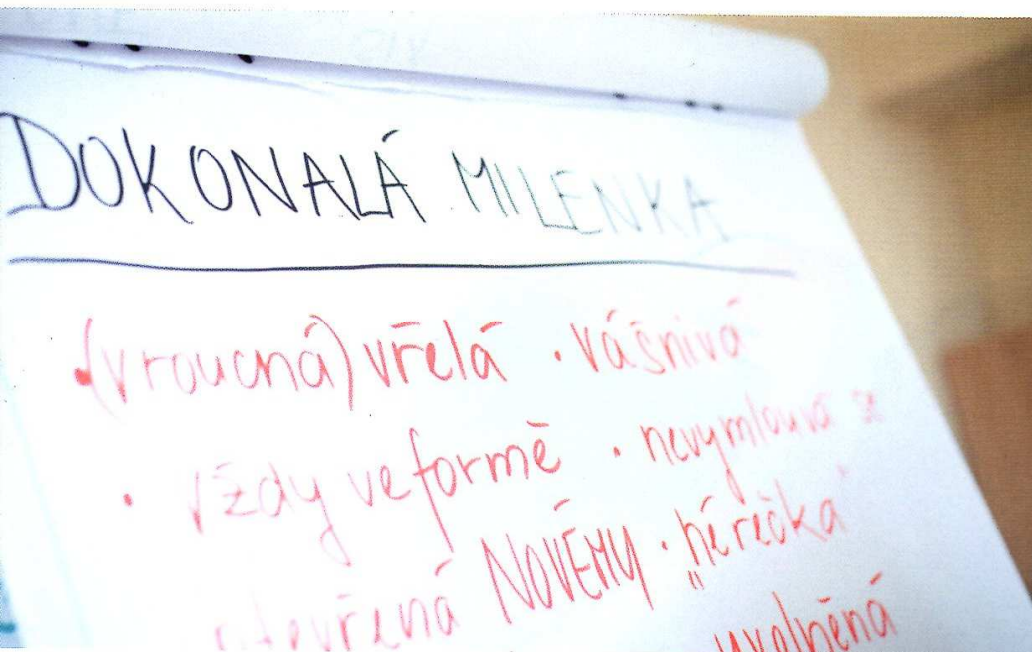 DOKONALÁ MILENKA
• (vroucná) vřelá • vášnivá
• vždy ve formě • nevymlouvá se
otevřená NOVÉMU • „hérečka"
uvolněná